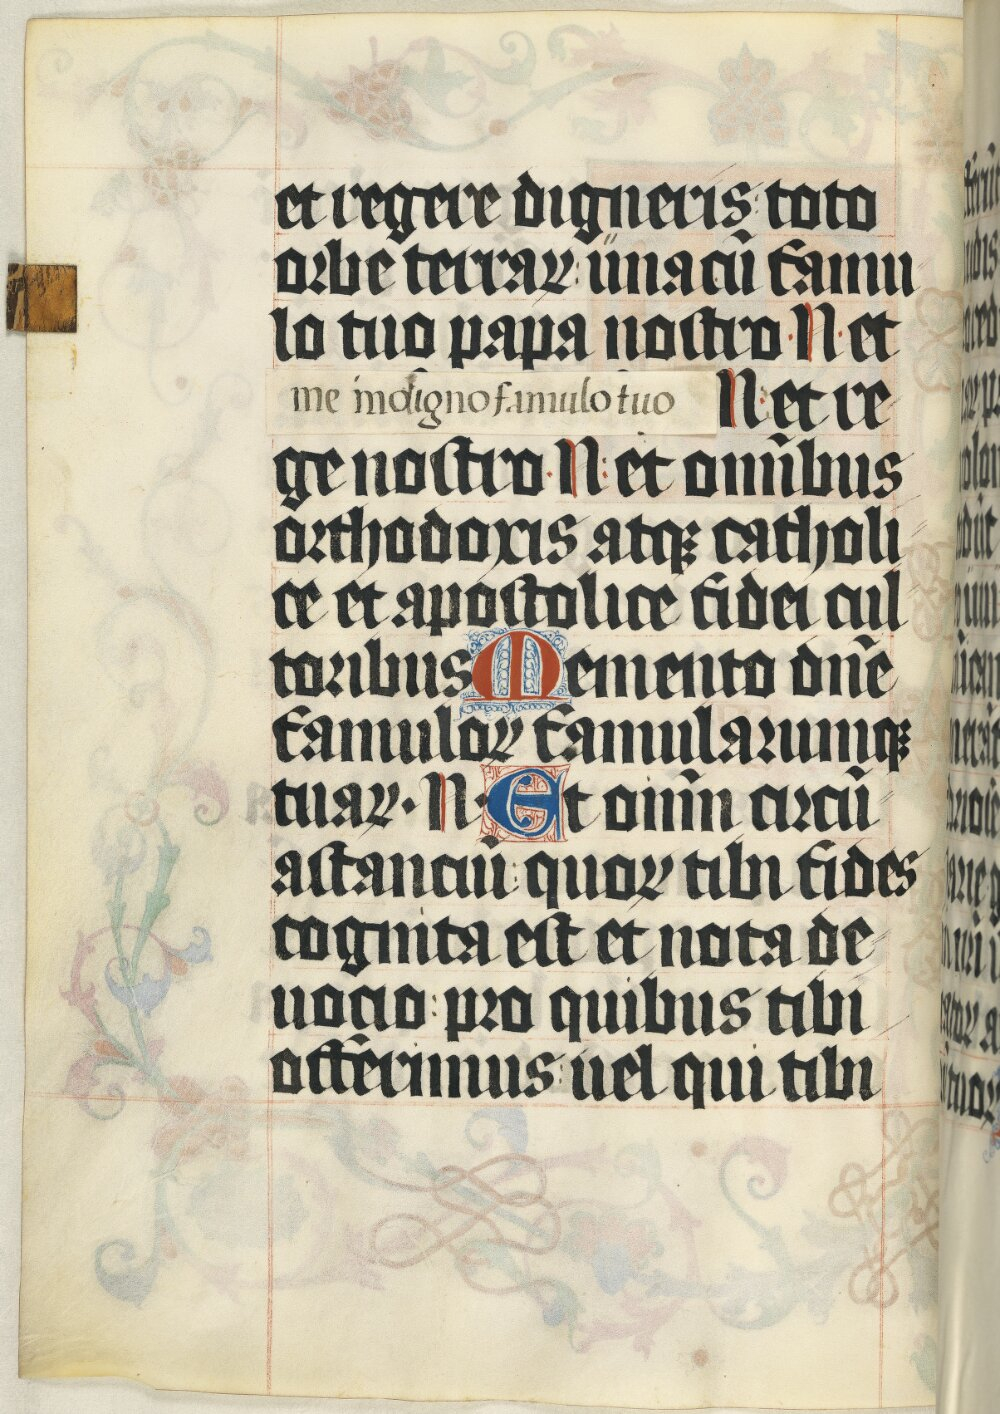 et regere digneris: toto
orbe terraꝝ: una cū famu
lo tuo papa nostro · N · et
me indigno famulo tuo N: et re
ge nostro · N: et omībus
orthodoxis atqꝫ catholi
ce et apostolice fidei cul
toribus Memento dn̄e
famuloꝝ famularumqꝫ
tuaꝝ · N · Et oīm̄ circū
astanciū: quoꝝ tibi fides
cognita est et nota de
uocio: pro quibus tibi
offerimus: uel qui tibi